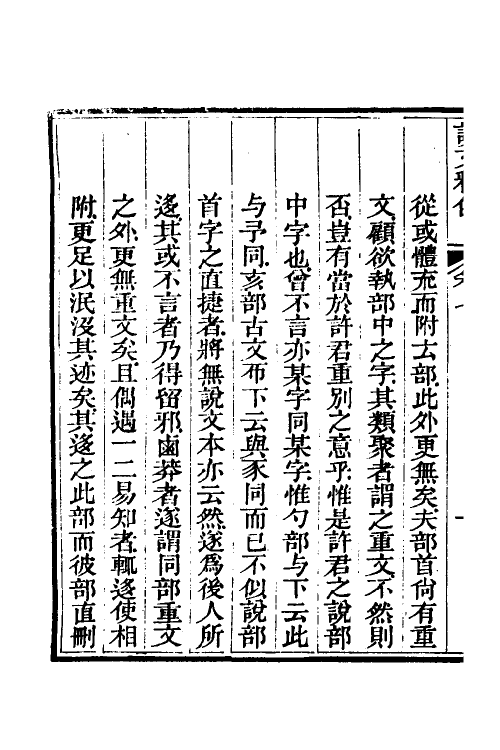 從或體㐬而附𠫓部此外更無矣夫部首尙有重
文顧欲執部中之字其類聚者謂之重文不然則
否豈有當於許君重別之意乎惟是許君之說部
中字也曾不言亦某字同某字惟勺部与下云此
与予同亥部古文𠀅下云與豕同而已不似說部
首字之直捷者將無說文本亦云然遂爲後人所
迻其或不言者乃得留邪鹵莽者遂謂同部重文
之外更無重文矣且偶遇一二易知者輒迻使相
附更足以泯沒其迹矣其迻之此部而彼部直刪